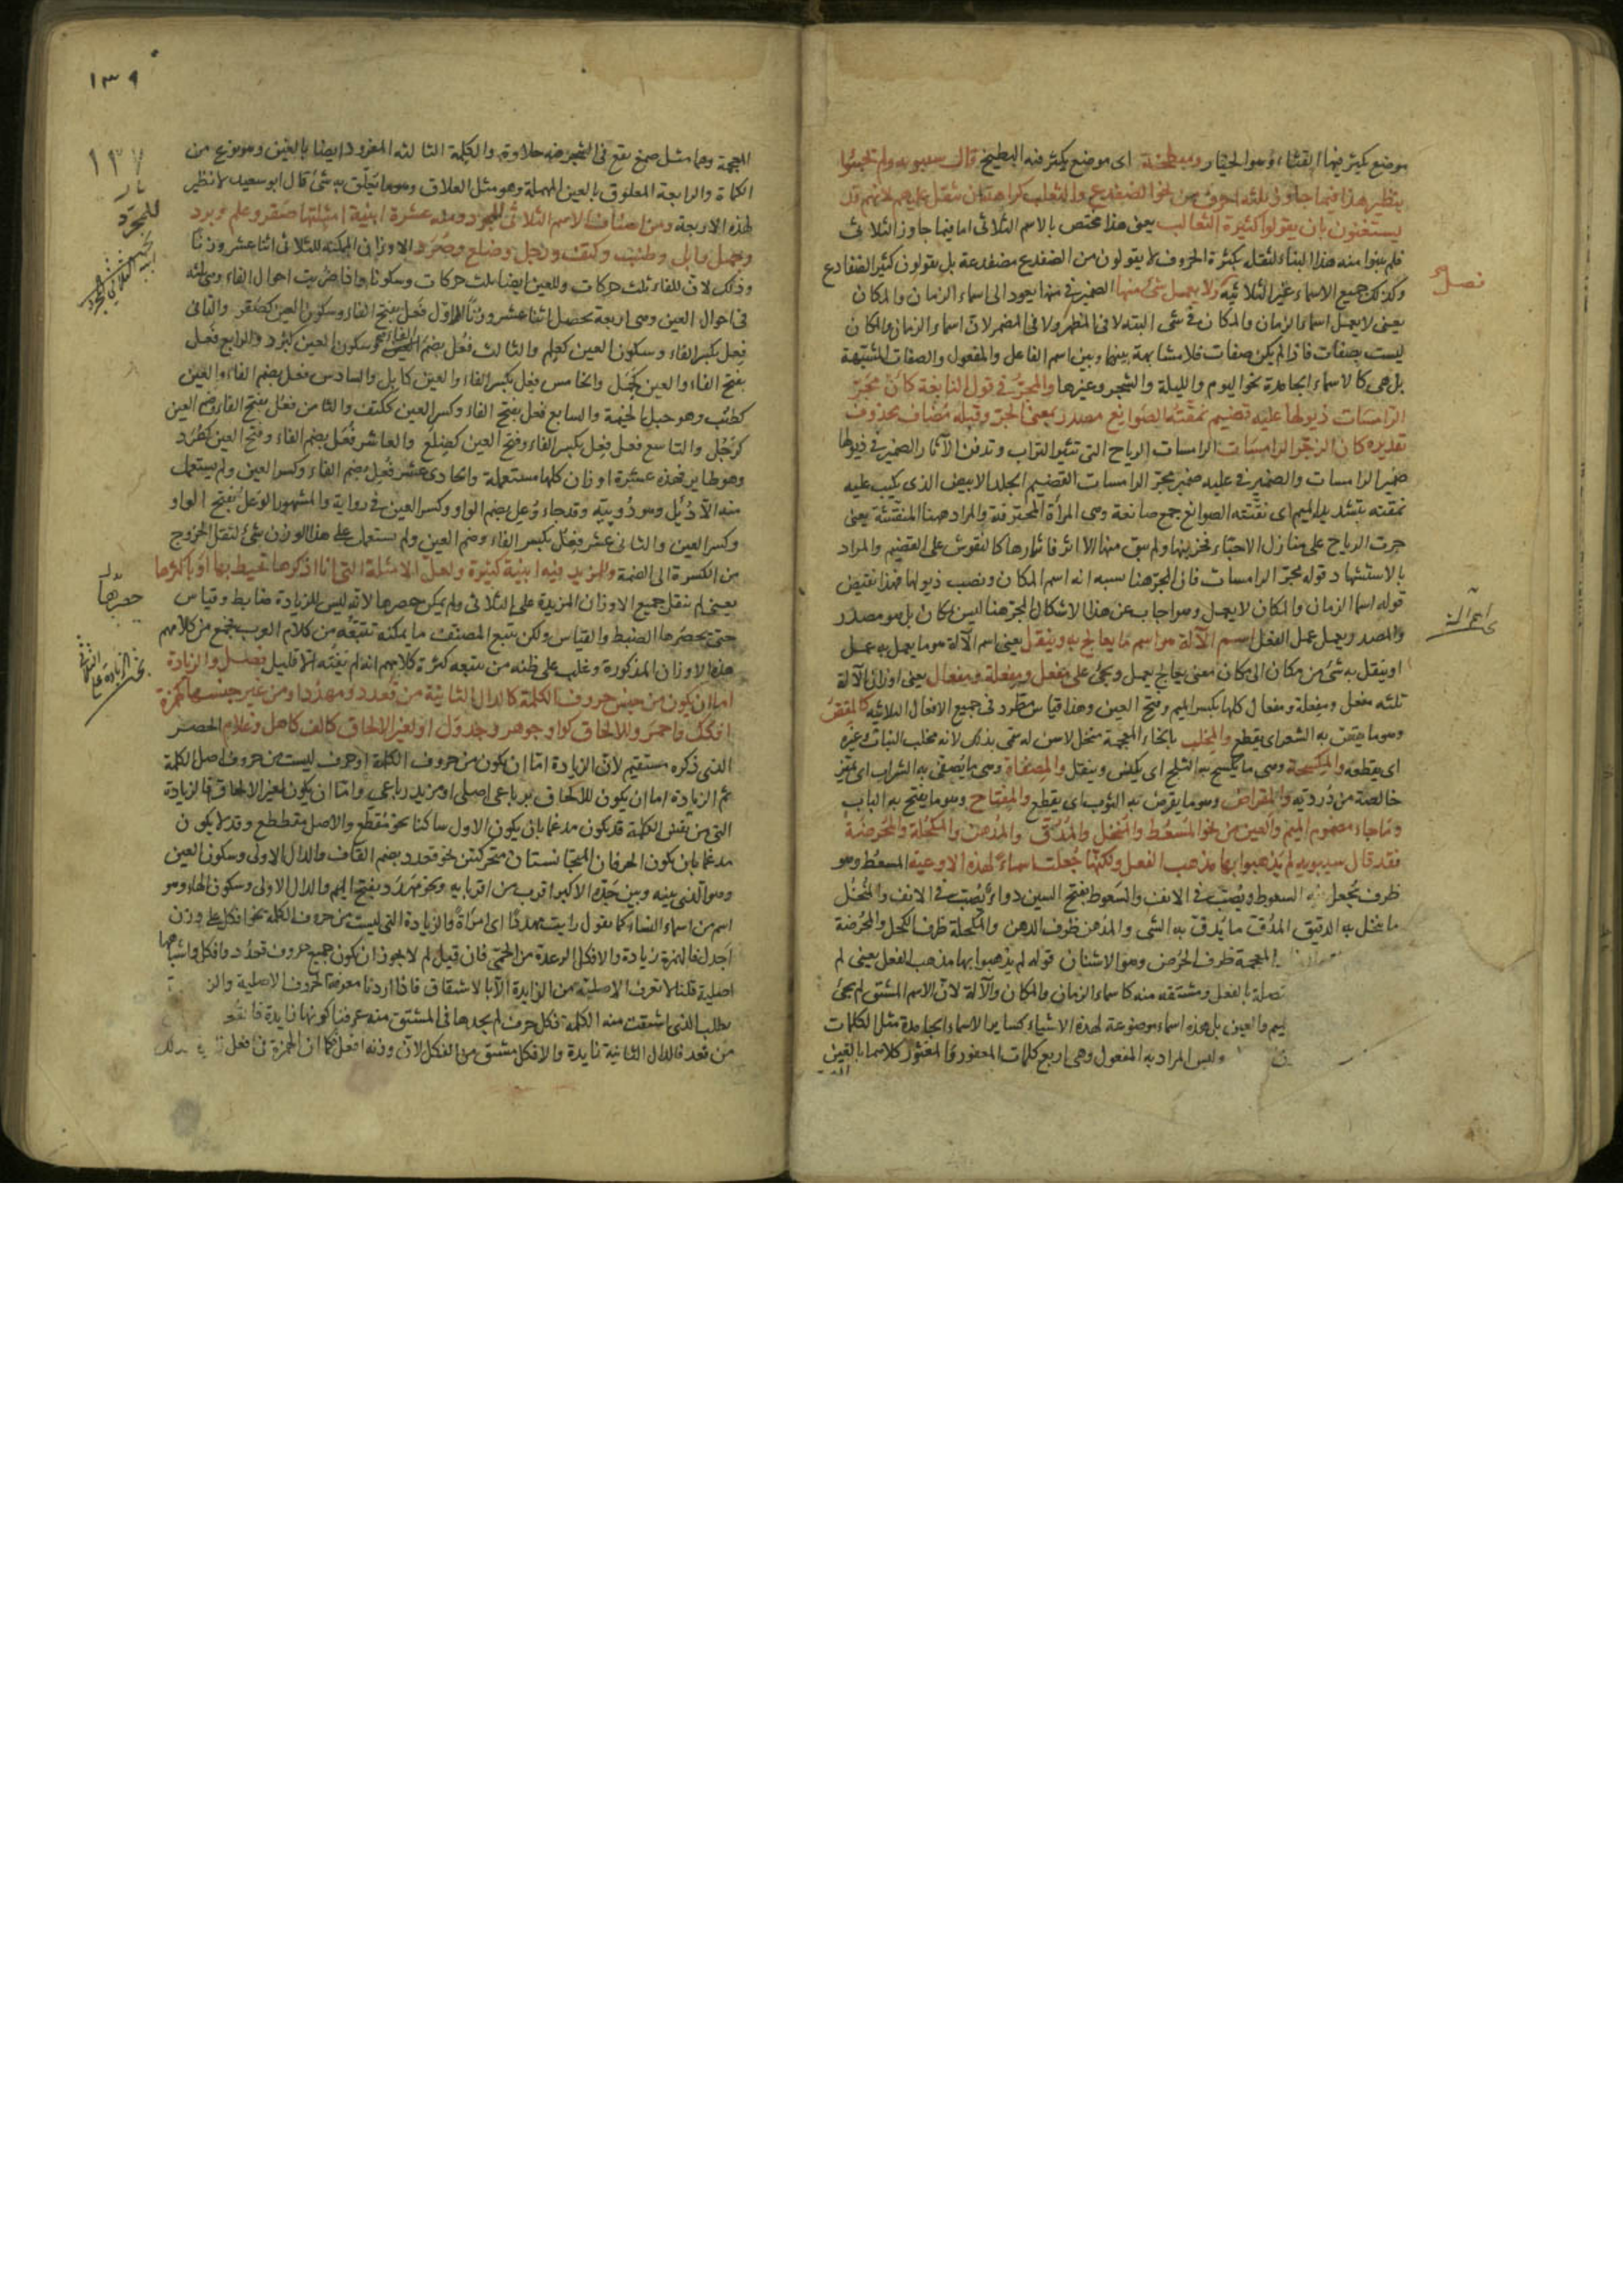 موضع يكثر فيها القثاء وهو الخيار ومبطخة اى موضع يكثر فيه البطيخ قال سيبويه ولم يجيئوا
بنظير هذا فيما جاوز ثلثة احرف من نحو الضفدع والثعلب كراهة ان يثقل عليهم لانهم قد
يستغنون بان يقولوا كثيرة الثعالب يعنى هذا مختص بالاسم الثلاثى اما فيما جاوز الثلاثى
فلم يبنوا منه هذا البناء لثقله بكثرة الحروف لا يقولون من الضفدع مضفدعة بل يقولون كثير الضفادع
وكذلك جميع الاسماء غير الثلاثية ولا يعمل شئ منها الضمير فى منها يعود الى اسماء الزمان والمكان
يعنى لا يعمل اسماء الزمان والمكان فى شى البتة لا فى المظهر ولا فى المضمر لان اسماء الزمان والمكان
ليست بصفات فاذا لم يكن صفات فلا مشابهة بينها وبين اسم الفاعل والمفعول والصفات المشبهة
بل هى كالاسماء الجامدة نحو اليوم والليلة والشجر وغيرها والمجر فى قول النابغة كان مجر
الرامسات ذيولها عليه قضيم نمقته الصوانع مصدر بمعنى الجر وقبله مضاف محذوف
تقديره كان اثر مجر الرامسات الرامسات الرياح التى تثير التراب وتدفن الآثار الضمير فى ذيولها
ضمير الرامسات والضمير فى عليه ضمير مجر الرامسات القضيم الجلد الابيض الذى يكتب عليه
نمقته بتشديد الميم اى نقشته الصوانع جمع صانعة وهى المرأة المحترفة والمراد ههنا المنقشة يعنى
جرت الرياح على منازل الاحباء فخربتها ولم يبق منها الا اثر فآثارها كالنقوش على القضيم والمراد
بالاستشهاد قوله مجر الرامسات فان المجر هنا يشبه انه اسم المكان ونصب ذيولها فهذا نقيض
قوله اسما الزمان والمكان لا يعمل وهو اجاب عن هذا الاشكال المجر هنا ليس بمكان بل هو مصدر
والمصدر يعمل عمل الفعل اسم الآلة هو اسم ما يعالج به وينقل يعنى اسم الآلة هو ما يعمل به عمل
او ينقل به شئ من مكان الى مكان معنى يعالج يعمل ويجئ على مفعل ومفعلة ومفعال يعنى اوزان الآلة
ثلثه مفعل ومفعلة ومفعال كلها بكسر الميم وفتح العين وهذا قياس مطرد فى جميع الافعال الثلاثية كالمقص
وهو ما يقص به الشعر اى يقطع والمحلب بالخاء المعجمة منجل لا سن له سمى بذلك لانه مخلب النبات وغيره
اى يقطعه والمكسحة وهى ما يكسح به الثلج اى يكنس وينقل والمصفاة وهى ما يصفى به الشراب اى يميز
خالصة من درديه والمقراض وهو ما يقرض به الثوب اى يقطع والمفتاح وهو ما يفتح به الباب
وما جاء مضموم الميم والعين من نحو المسعط والمنخل والمدق والمدهن والمكحلة والمحرضة
فقد قال سيبويه لم يذهبوا بها مذهب الفعل ولكنها جعلت اسماء لهذه الاوعية المسعط وهو
ظرف يجعل فيه السعوط ويصب فى الانف والسعوط بفتح السين دواء يصب فى الانف والمنخل
ما ينخل به الدقيق المدق ما يدق به الشى والمدهن ظرف الدهن والمكحلة ظرف الكحل والمحرضة
المعجمة ظرف الحرض وهو الاشنان قوله لم يذهبوا بها مذهب الفعل يعنى لم
تصلة بالفعل ومشتقه منه كاسماء الزمان والمكان والآلة لان الاسم المشتق لم يجئ
ليم والعين بل هذه اسماء موضوعة لهذه الاشياء كساير الاسماء الجامدة مثل الكلمات
وليس المراد به المفعول وهى اربع كلمات المغفور والمغثور كلاهما بالغين
فصل
اسم الآلة
١٣٩
١٣٧
المعجمة وهما مثل صمغ يقع فى الشجر فيه حلاوة والكلمة الثالثة المغرود ايضا بالغين وهو نوع من
الكمأة والرابعة المعلوق بالعين المهملة وهو مثل العلاق وهو ما يعلق به شئ قال ابو سعيد لا نظير
لهذه الاربعة ومن اصناف الاسم الثلاثى للمجرد ومنه عشرة ابنية امثلتها صقر وعلم وبرد
وجمل وابل وطنب وكتف ورجل وضلع وصرد الاوزان الممكنة للثلاثى اثنا عشر وزنا
وذلك لان للفاء ثلث حركات وللعين ايضا ثلث حركات وسكونا واذا ضربت احوال الفاء وهى ثلثه
فى احوال العين وهى اربعة تحصل اثنا عشر وزنا الاول فعل بفتح الفاء وسكون العين كصقر والثانى
فعل بكسر الفاء وسكون العين كعلم والثالث فعل بضم الفاء وسكون العين كبرد والرابع فعل
بفتح الفاء والعين كجمل والخامس فعل بكسر الفاء والعين كابل والسادس فعل بضم الفاء والعين
كطنب وهو حبل الخيمة والسابع فعل بفتح الفاء وكسر العين ككتف والثامن فعل بفتح الفاء وضم العين
كرجل والتاسع فعل بكسر الفاء وفتح العين كضلع والعاشر فعل بضم الفاء وفتح العين كصرد
وهو طاير فهذه عشرة اوزان كلها مستعملة والحادى عشر فعل بضم الفاء وكسر العين ولم يستعمل
منه الا دئل وهو دويبة وقد جاء وعل بضم الواو وكسر العين فى رواية والمشهور الوعل بفتح الواو
وكسر العين والثانى عشر فعل بكسر الفاء وضم العين ولم يستعمل على هذا الوزن شئ لثقل الخروج
من الكسرة الى الضمة وللمزيد فيه ابنية كثيرة ولعل الامثلة التى انا اذكرها تحيط بها او باكثرها
يعنى لم ينقل جميع الاوزان المزيدة على الثلاثى ولم يمكن حصرها لانه ليس للزيادة ضابط وقياس
حتى يحصرها الضبط والقياس ولكن تتبع المصنف ما يمكنه تتبعه من كلام العرب فجمع من كلامهم
هذه الاوزان المذكورة وغلب على ظنه من تتبعه كثرة كلامهم انه لم يفته الا قليل فصل والزيادة
اما ان يكون من جنس حروف الكلمة كالدال الثانية من قعدد ومهدد او من غير جنسها كهمزة
افكل واحمر وللالحاق كواو جوهر وجدول او لغير الالحاق كالف كاهل وغلام الحصر
الذى ذكره مستقيم لان الزيادة اما ان يكون من حروف الكلمة او حرف ليست من حروف اصل الكلمة
ثم الزيادة اما ان يكون للالحاق برباعى اصلى او مزيد رباعى واما ان يكون لغير الالحاق فالزيادة
التى من نفس الكلمة قد يكون مدغما بان يكون الاول ساكنا نحو مقطع والاصل مقطع وقد لا يكون
مدغما بان يكون الحرفان المتجانستان متحركتين نحو قعدد بضم القاف والدال الاولى وسكون العين
وهو الذى بينه وبين جده الاكبر اقرب من اقربائه ونحو مهدد بفتح الميم والدال الاولى وسكون الهاء وهو
اسم من اسماء النساء كما يقول رايت مهددا اى امرأة والزيادة التى ليست من حروف الكلمة نحو افكل على وزن
اجدل فالهمزة زيادة والافكل الرعدة من الحمى فان قيل لم لا يجوز ان يكون جميع حروف قعدد وافكل واشباهها
اصلية قلنا لا تعرف الاصلية من الزايدة الا بالاشتقاق فاذا اردنا معرفة الحروف الاصلية والز
نطلب الذى اشتقت منه الكلمة فكل حرف لم نجدها فى المشتق منه عرفنا كونها زايدة فا
من قعد فالدال الثانية زايدة والافكل مشتق من الفكل لان وزنه افعل فكما ان الهمزة فى افعل
للمجرد
ابنية الثلاثى المجرد
حصرها
بحث الزيادة على الثلاثى